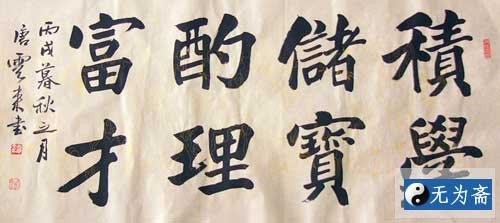 積學
儲寶
酌理
富才
丙戌暮秋之月
唐雲来书
无为斋